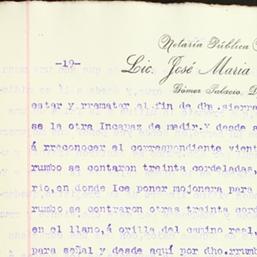 Notaría Pública
-19-
Lic. José Maria
Gómez Palacio, D
estar y rrematar al fin de dha. sierra
se la otra Incapaz de medir.Y desde a
á rreconocer el correspondiente vient
rumbo se contaron treinta cordeladas,
rio,en donde Ice poner mojonera para
rumbo se contraron otras treinta cord
en el llano,á orilla del camino real,
para señal y desde aquí por dho.rrumb